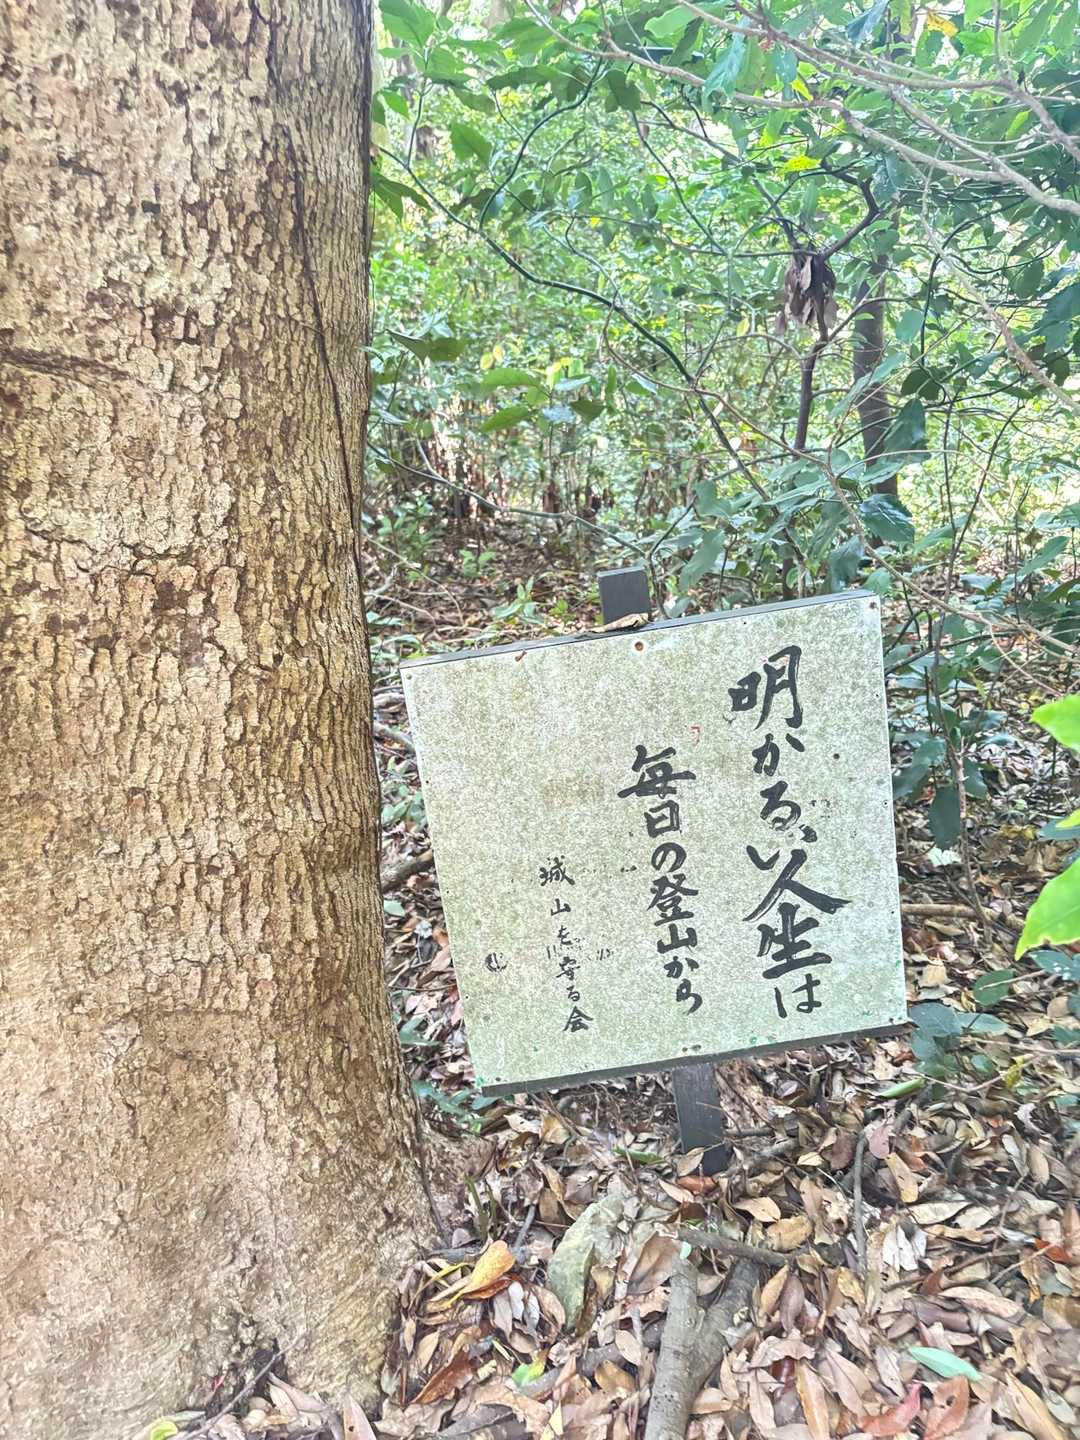 明かるい人生は
毎日の登山から
城山を守る会